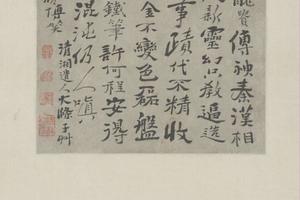 貴傳神秦漢相
新靈幻只教逼造
事蹟代不精收
金不變色磊盤
鐵筆許何程安得
混沌仍人嗔
清湘遺人大滌子艸
博笑